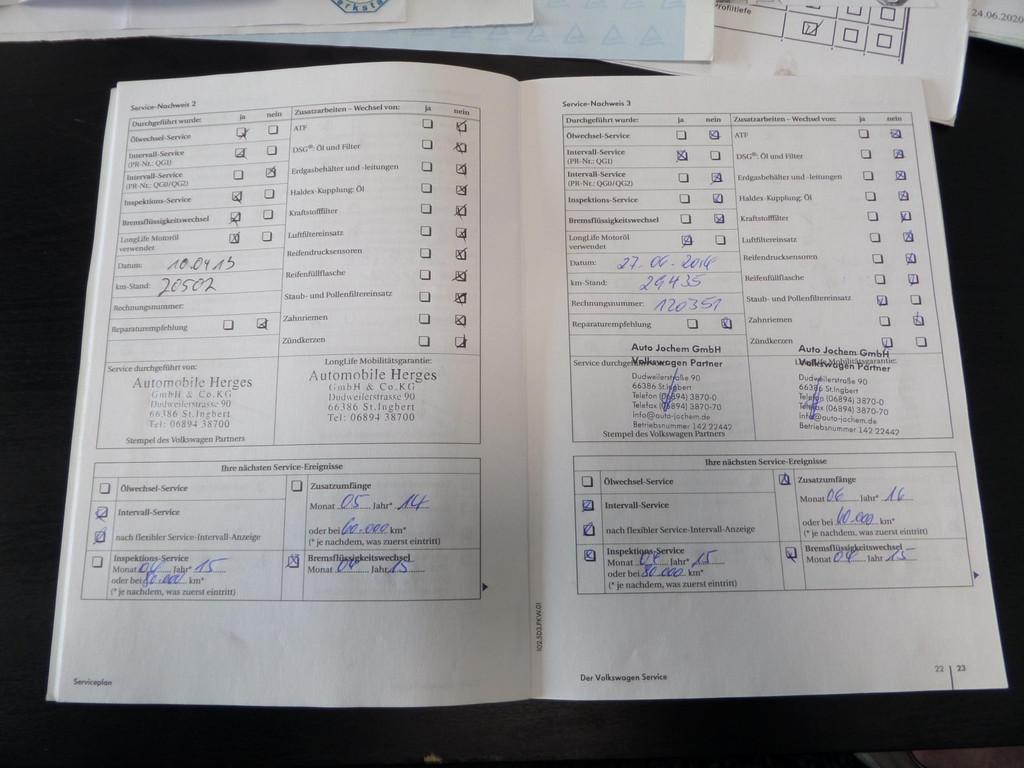 Profiltiefe
24.06.2020
Service-Nachweis 2
Durchgeführt wurde: ja nein
Ölwechsel-Service
Intervall-Service
(PR-Nr.: QG1)
Intervall-Service
(PR-Nr.: QG0/QG2)
Inspektions-Service
Bremsflüssigkeitswechsel
LongLife Motoröl
verwendet
Datum: 10.04.13
km-Stand: 20502
Rechnungsnummer:
Reparaturempfehlung
Zusatzarbeiten – Wechsel von: ja nein
ATF
DSG®: Öl und Filter
Erdgasbehälter und -leitungen
Haldex-Kupplung: Öl
Kraftstofffilter
Luftfiltereinsatz
Reifendrucksensoren
Reifenfüllflasche
Staub- und Pollenfiltereinsatz
Zahnriemen
Zündkerzen
Service durchgeführt von:
Automobile Herges
GmbH & Co.KG
Dudweilerstrasse 90
66386 St.Ingbert
Tel: 06894 38700
LongLife Mobilitätsgarantie:
Automobile Herges
GmbH & Co.KG
Dudweilerstrasse 90
66386 St.Ingbert
Tel: 06894 38700
Stempel des Volkswagen Partners
Ihre nächsten Service-Ereignisse
Ölwechsel-Service
Intervall-Service
nach flexibler Service-Intervall-Anzeige
Zusatzumfänge
Monat 05 Jahr* 14
oder bei 60.000 km*
(* je nachdem, was zuerst eintritt)
Inspektions-Service
Monat 04 Jahr* 15
oder bei 80.000 km*
(* je nachdem, was zuerst eintritt)
Bremsflüssigkeitswechsel
Monat 04 Jahr 15
Serviceplan
102.5D3.PKW.01
Service-Nachweis 3
Durchgeführt wurde: ja nein
Ölwechsel-Service
Intervall-Service
(PR-Nr.: QG1)
Intervall-Service
(PR-Nr.: QG0/QG2)
Inspektions-Service
Bremsflüssigkeitswechsel
LongLife Motoröl
verwendet
Datum: 27.06.2014
km-Stand: 29435
Rechnungsnummer: 120351
Reparaturempfehlung
Zusatzarbeiten – Wechsel von: ja nein
ATF
DSG®: Öl und Filter
Erdgasbehälter und -leitungen
Haldex-Kupplung: Öl
Kraftstofffilter
Luftfiltereinsatz
Reifendrucksensoren
Reifenfüllflasche
Staub- und Pollenfiltereinsatz
Zahnriemen
Zündkerzen
Auto Jochem GmbH
Volkswagen Partner
Dudweilerstraße 90
66386 St.Ingbert
Telefon (06894) 3870-0
Telefax (06894) 3870-70
info@auto-jochem.de
Betriebsnummer 142 22442
Auto Jochem GmbH
Volkswagen Partner
Dudweilerstraße 90
66386 St.Ingbert
Telefon (06894) 3870-0
Telefax (06894) 3870-70
info@auto-jochem.de
Betriebsnummer 142 22442
Stempel des Volkswagen Partners
Ihre nächsten Service-Ereignisse
Ölwechsel-Service
Intervall-Service
nach flexibler Service-Intervall-Anzeige
Zusatzumfänge
Monat 06 Jahr* 16
oder bei 60.000 km*
(* je nachdem, was zuerst eintritt)
Inspektions-Service
Monat 04 Jahr* 15
oder bei 80.000 km*
(* je nachdem, was zuerst eintritt)
Bremsflüssigkeitswechsel
Monat 04 Jahr 15
Der Volkswagen Service
22 | 23